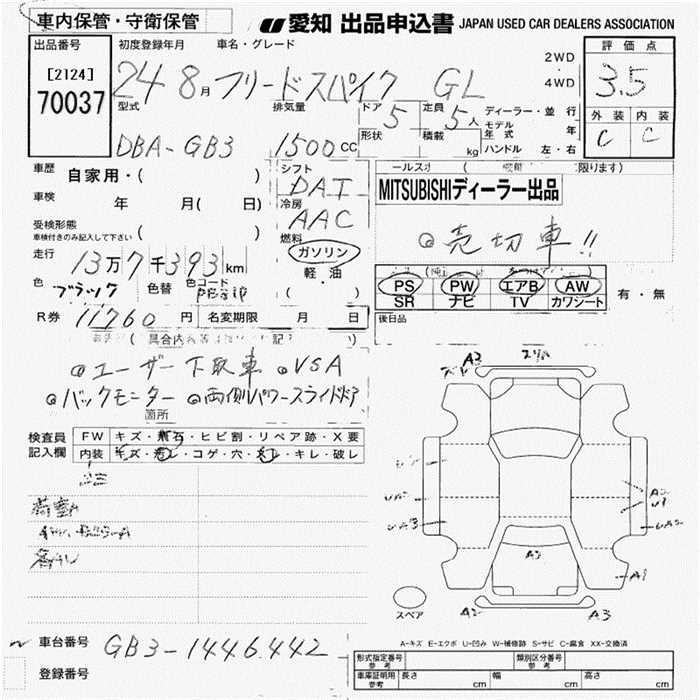 車内保管・守衛保管
愛知 出品申込書 JAPAN USED CAR DEALERS ASSOCIATION
出品番号 初度登録年月 車名・グレード 評価点
[2124]
70037
24 8月 フリードスパイク GL
2WD
4WD
3.5
型式 排気量 ドア 5 定員 5人 ディーラー・並行
外装 内装
DBA-GB3 1500CC 形状 積載 kg
モデル年式 年
ハンドル 左・右
C C
車歴 自家用・( )
シフト
DAT
車検 年 月(日)
冷房
AAC
MITSUBISHIディーラー出品
受検形態
車検付きのみ記入して下さい ( )
燃料
ガソリン
軽・油
( )
◎売切車!!
走行 13万7千393km
色 ブラック 色替 色コード
PS PW エアB AW
SR ナビ TV カワシート
有・無
R券 11760円 名変期限 月 日
後日品
◎ユーザー下取車 ◎VSA
◎バックモニター ◎両側パワースライドドア
箇所
検査員記入欄 FW キズ・飛石・ヒビ割・リペア跡・X要
内装 キズ・汚レ・コゲ・穴・スレ・キレ・破レ
A3
A2
A1
A3
スペア
A2
A3
車台番号 GB3-1446442
A-キズ E-エクボ U-凹み W-補修跡 S-サビ C-腐食 XX-交換済
登録番号
形式指定番号 参考 類別区分番号 参考
車庫証明用 参考 長さ cm 幅 cm 高さ cm